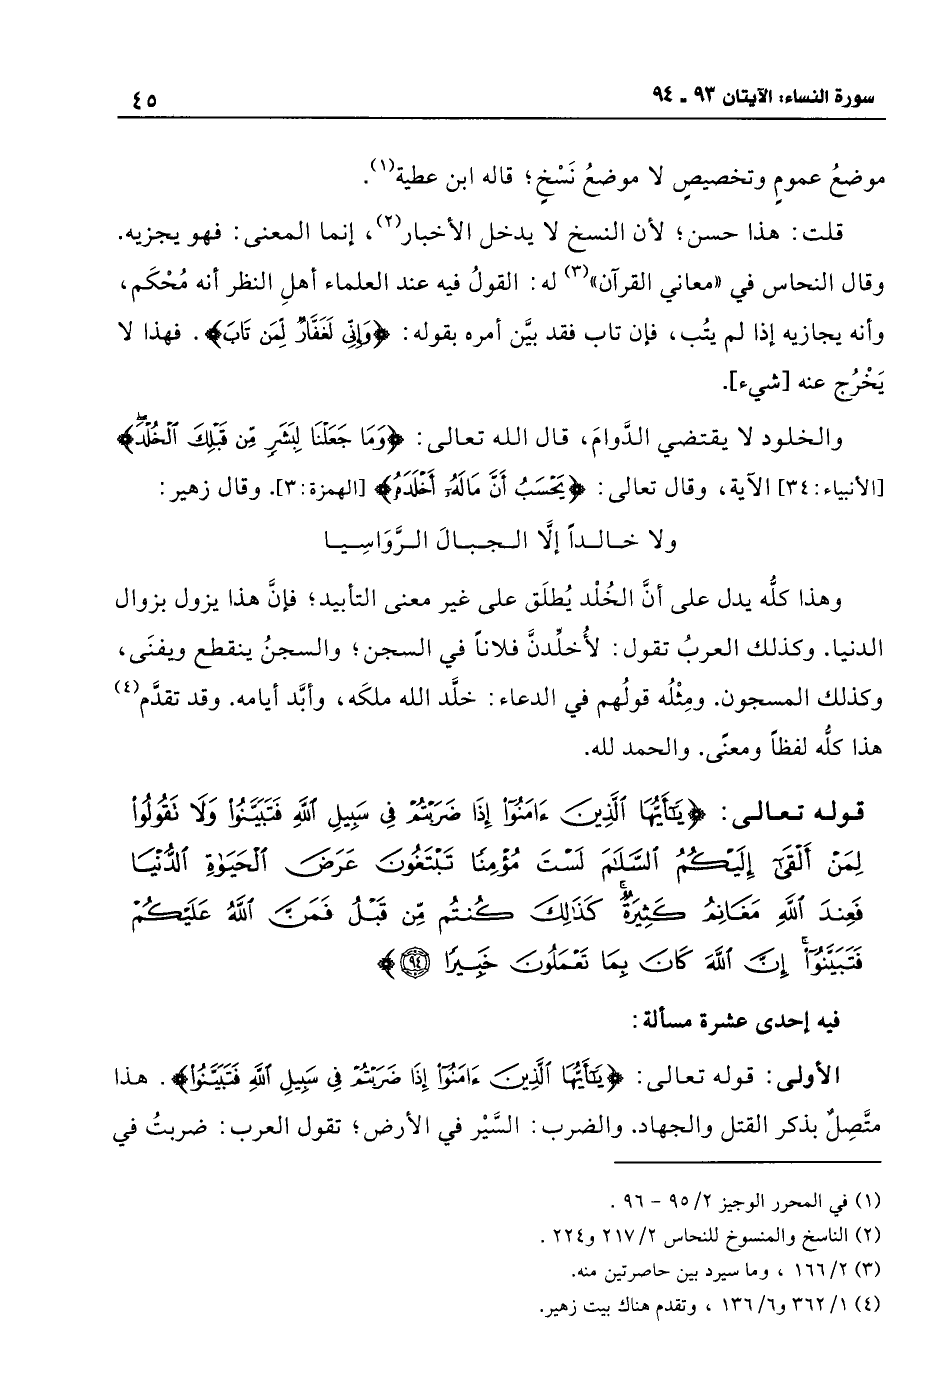 سورة النساء: الآيتان ٩٣ - ٩٤
٤٥
موضعُ عمومٍ وتخصيصٍ لا موضعُ نَسْخٍ؛ قاله ابن عطية(١).
قلت: هذا حسن؛ لأن النسخ لا يدخل الأخبار(٢)، إنما المعنى: فهو يجزيه.
وقال النحاس في «معاني القرآن»(٣) له: القولُ فيه عند العلماء أهلِ النظر أنه مُحْكَم،
وأنه يجازيه إذا لم يتُب، فإن تاب فقد بيَّن أمره بقوله: ﴿وَإِنِّي لَغَفَّارٌ لِّمَن تَابَ﴾. فهذا لا
يَخْرُج عنه [شيء].
والخلود لا يقتضي الدَّوامَ، قال الله تعالى: ﴿وَمَا جَعَلْنَا لِبَشَرٍ مِّن قَبْلِكَ ٱلْخُلْدَۖ﴾
[الأنبياء:٣٤] الآية، وقال تعالى: ﴿يَحْسَبُ أَنَّ مَالَهُۥ أَخْلَدَهُ﴾ [الهمزة:٣]. وقال زهير:
ولا خـالـداً إلَّا الـجبـالَ الـرَّوَاسِـيـا
وهذا كلُّه يدل على أنَّ الخُلْد يُطلَق على غير معنى التأبيد؛ فإنَّ هذا يزول بزوال
الدنيا. وكذلك العربُ تقول: لأُخلِّدنَّ فلاناً في السجن؛ والسجنُ ينقطع ويفنَى،
وكذلك المسجون. ومِثْلُه قولُهم في الدعاء: خلَّد الله ملكَه، وأبَّد أيامه. وقد تقدَّم(٤)
هذا كلُّه لفظاً ومعنًى. والحمد لله.
قوله تعالى: ﴿يَٰٓأَيُّهَا ٱلَّذِينَ ءَامَنُوٓا۟ إِذَا ضَرَبْتُمْ فِى سَبِيلِ ٱللَّهِ فَتَبَيَّنُوا۟ وَلَا تَقُولُوا۟
لِمَنْ أَلْقَىٰٓ إِلَيْكُمُ ٱلسَّلَٰمَ لَسْتَ مُؤْمِنًا تَبْتَغُونَ عَرَضَ ٱلْحَيَوٰةِ ٱلدُّنْيَا
فَعِندَ ٱللَّهِ مَغَانِمُ كَثِيرَةٌۚ كَذَٰلِكَ كُنتُم مِّن قَبْلُ فَمَنَّ ٱللَّهُ عَلَيْكُمْ
فَتَبَيَّنُوٓا۟ۚ إِنَّ ٱللَّهَ كَانَ بِمَا تَعْمَلُونَ خَبِيرًا ۝٩٤﴾
فيه إحدى عشرة مسألة:
الأولى: قوله تعالى: ﴿يَٰٓأَيُّهَا ٱلَّذِينَ ءَامَنُوٓا۟ إِذَا ضَرَبْتُمْ فِى سَبِيلِ ٱللَّهِ فَتَبَيَّنُوا۟﴾. هذا
متَّصِلٌ بذكر القتل والجهاد. والضرب: السَّيْر في الأرض؛ تقول العرب: ضربتُ في
(١) في المحرر الوجيز ٢/ ٩٥ – ٩٦ .
(٢) الناسخ والمنسوخ للنحاس ٢/ ٢١٧ و٢٢٤ .
(٣) ٢/ ١٦٦ ، وما سيرد بين حاصرتين منه.
(٤) ١/ ٣٦٢ و٦/ ١٣٦ ، وتقدم هناك بيت زهير.